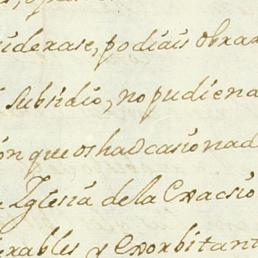 uiderase, podiais obrar
l subsidio, no pudiena
ón que os ha ocasionad
e Iglesia de la exacsio
erables y exorbitant